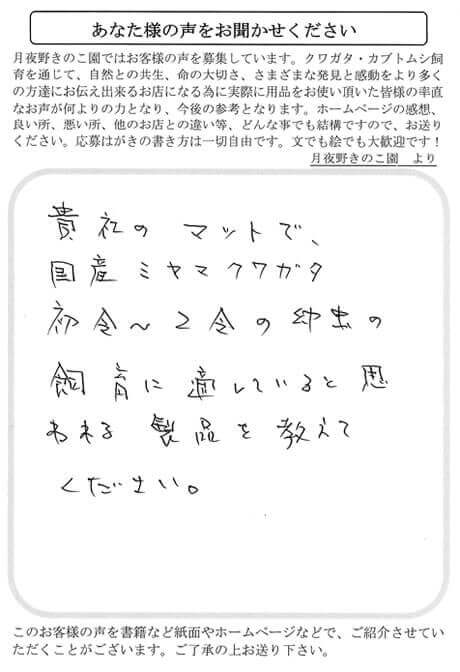 あなた様の声をお聞かせください
月夜野きのこ園ではお客様の声を募集しています。クワガタ・カブトムシ飼
育を通じて、自然との共生、命の大切さ、さまざまな発見と感動をより多く
の方達にお伝え出来るお店になる為に実際に用品をお使い頂いた皆様の率直
なお声が何よりの力となり、今後の参考となります。ホームページの感想、
良い所、悪い所、他のお店との違い等、どんな事でも結構ですので、お送り
ください。応募はがきの書き方は一切自由です。文でも絵でも大歓迎です！
月夜野きのこ園　より
貴社のマットで、
国産ミヤマクワガタ
初令〜2令の幼虫の
飼育に適していると思
われる製品を教えて
ください。
このお客様の声を書籍など紙面やホームページなどで、ご紹介させてい
ただくことがございます。ご了承の上お送り下さい。